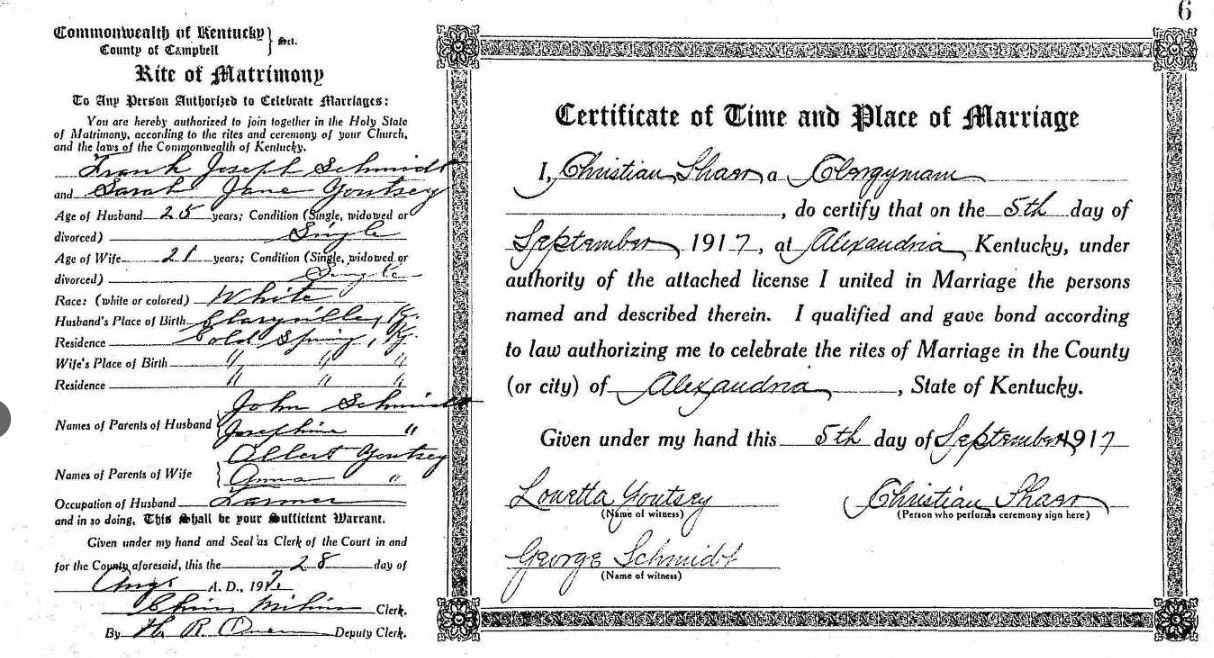 6
Commonwealth of Kentucky } Sct.
County of Campbell
Rite of Matrimony
To Any Person Authorized to Celebrate Marriages:
You are hereby authorized to join together in the Holy State
of Matrimony, according to the rites and ceremony of your Church,
and the laws of the Commonwealth of Kentucky.
Frank Joseph Schmidt
and Sarah Jane Youtsey
Age of Husband 25 years; Condition (Single, widowed or
divorced) Single
Age of Wife 21 years; Condition (Single, widowed or
divorced) Single
Race: (white or colored) White
Husband's Place of Birth Claryville, Ky.
Residence Cold Spring, Ky.
Wife's Place of Birth " " "
Residence " " "
John Schmidt
Names of Parents of Husband { Josephine "
Albert Youtsey
Names of Parents of Wife { Anna "
Occupation of Husband Farmer
and in so doing, This Shall be your Sufficient Warrant.
Given under my hand and Seal as Clerk of the Court in and
for the County aforesaid, this the 28 day of
Aug. A. D., 1917
Clerk.
By H. R. Deputy Clerk.
Certificate of Time and Place of Marriage
I, Christian a Clergyman
, do certify that on the 5th day of
September 1917, at Alexandria Kentucky, under
authority of the attached license I united in Marriage the persons
named and described therein. I qualified and gave bond according
to law authorizing me to celebrate the rites of Marriage in the County
(or city) of Alexandria, State of Kentucky.
Given under my hand this 5th day of September 1917
Louetta Youtsey Christian
(Name of witness) (Person who performs ceremony sign here)
George Schmidt
(Name of witness)